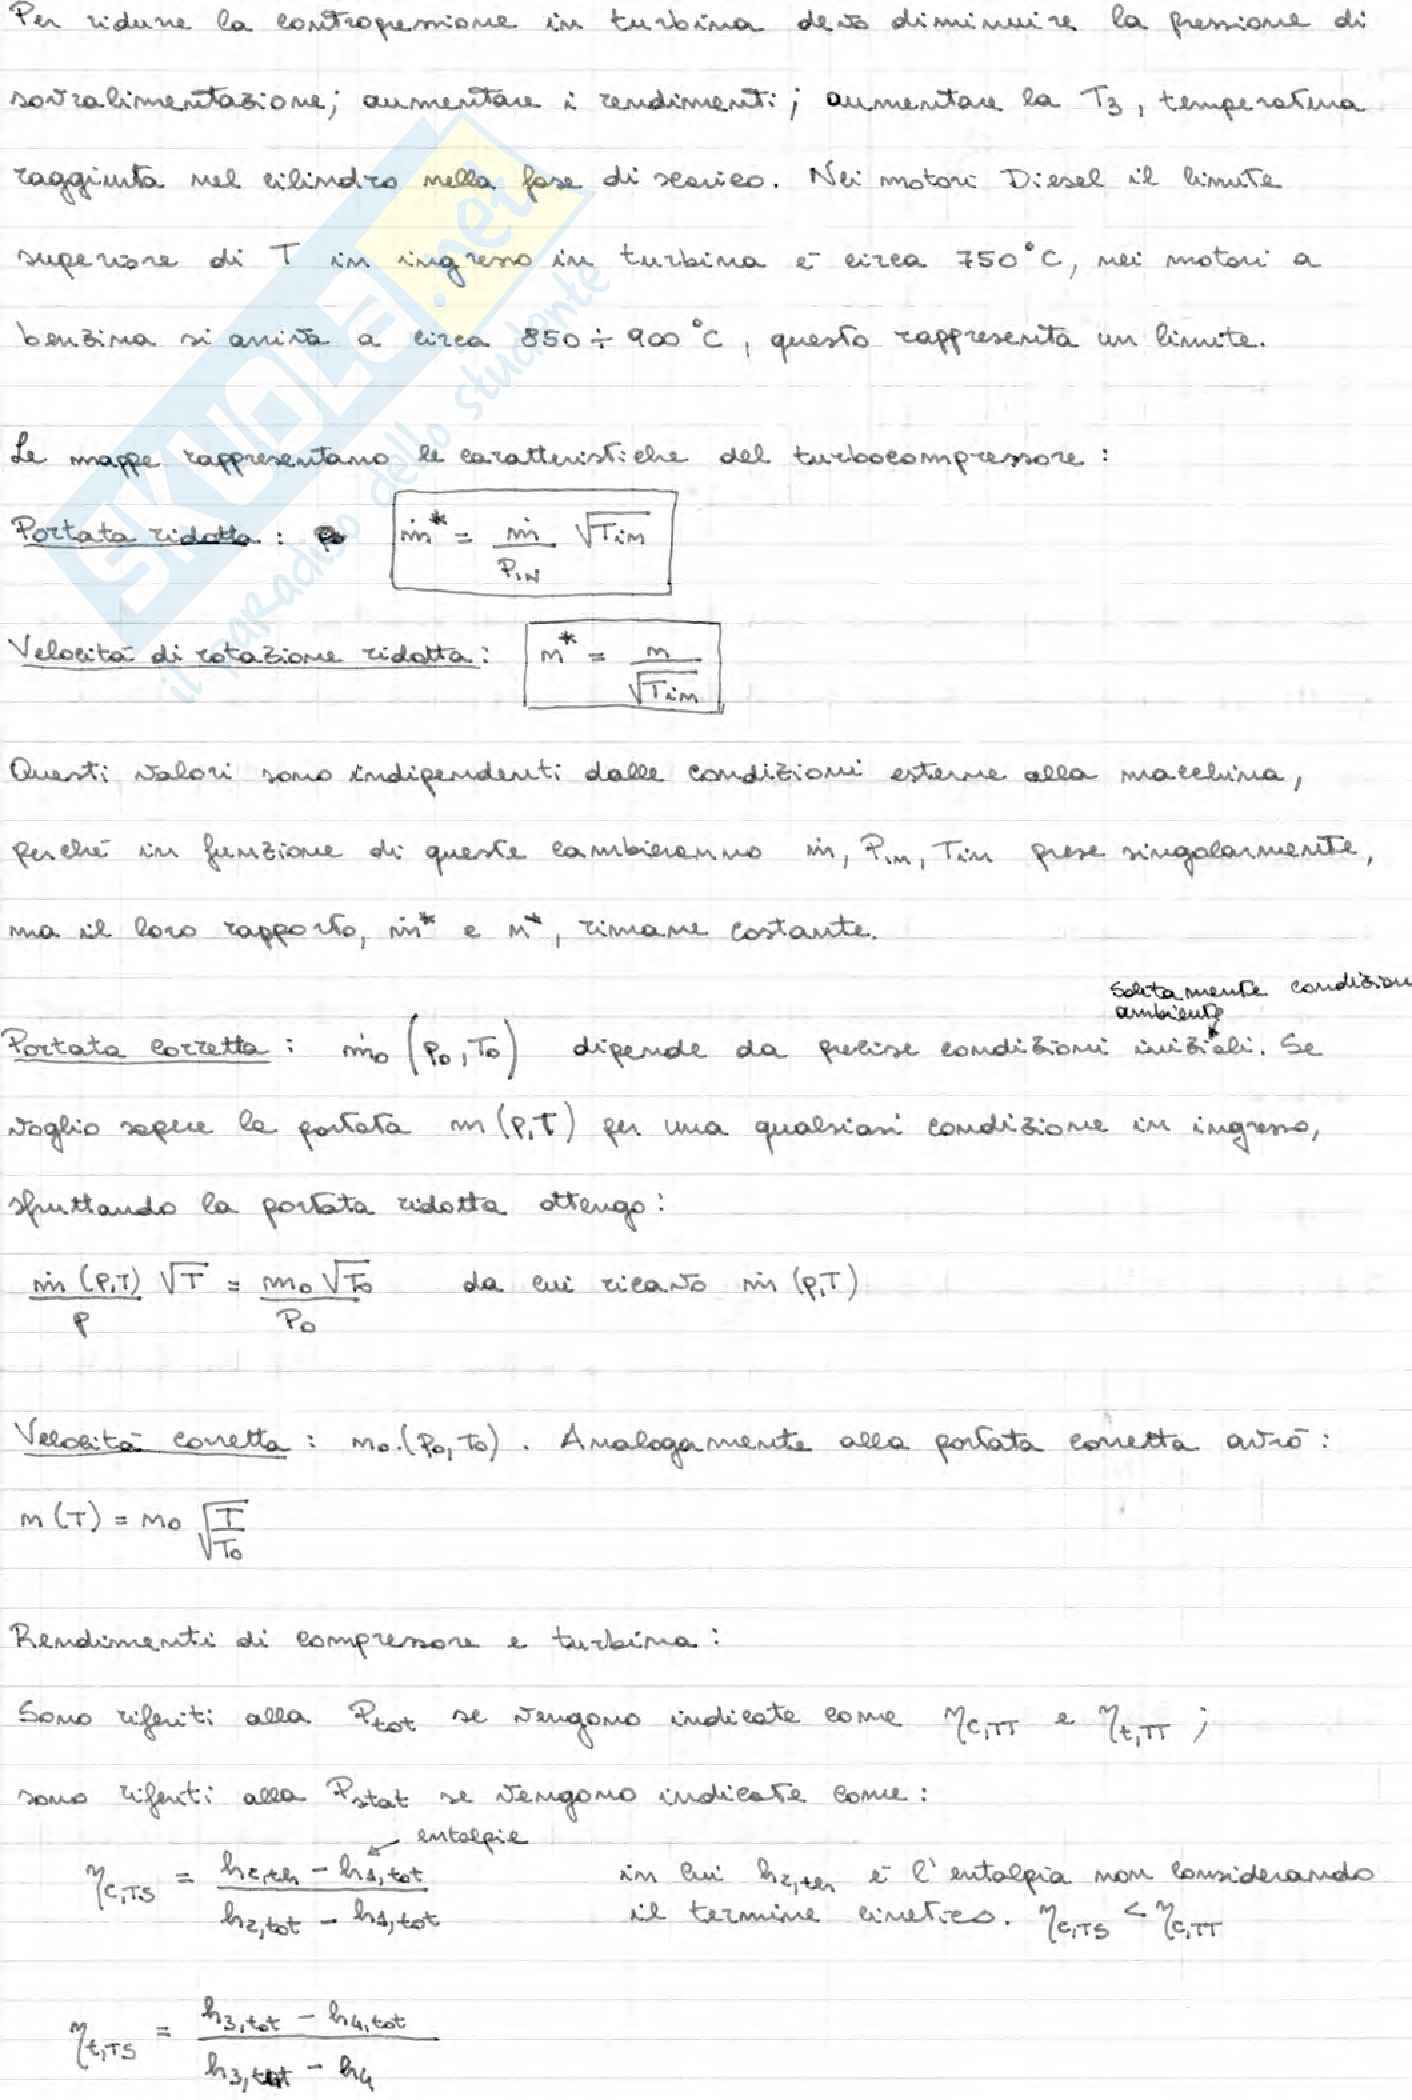 Per ridurre la contropressione in turbina devo diminuire la pressione di
sovralimentazione; aumentare i rendimenti; aumentare la T3, temperatura
raggiunta nel cilindro nella fase di scarico. Nei motori Diesel il limite
superiore di T in ingresso in turbina è circa 750°C, nei motori a
benzina si arriva a circa 850÷900°C, questo rappresenta un limite.
Le mappe rappresentano le caratteristiche del turbocompressore:
Portata ridotta: ṁ* = ṁ/P_IN √T_in
Velocità di rotazione ridotta: n* = n/√T_in
Questi valori sono indipendenti dalle condizioni esterne alla macchina,
perché in funzione di queste cambieranno ṁ, P_in, T_in prese singolarmente,
ma il loro rapporto, ṁ* e n*, rimane costante.
Solitamente condizioni
ambiente
Portata corretta: ṁ0 (p0,T0) dipende da precise condizioni iniziali. Se
voglio sapere la portata m(p,T) per una qualsiasi condizione in ingresso,
sfruttando la portata ridotta ottengo:
ṁ(p,T)/p √T = m0√T0/P0 da cui ricavo ṁ(p,T)
Velocità corretta: n0.(P0,T0). Analogamente alla portata corretta avrò:
n(T) = n0 √T/√T0
Rendimenti di compressore e turbina:
Sono riferiti alla Ptot se vengono indicate come ηc,TT e ηt,TT;
sono riferiti alla Pstat se vengono indicate come:
entalpie
ηc,TS = (h2,th - h1,tot)/(h2,tot - h1,tot) in cui h2,th è l'entalpia non considerando
il termine cinetico. ηc,TS < ηc,TT
ηt,TS = (h3,tot - h4,tot)/(h3,tot - h4)
SKUOLA.net
il paradiso dello studente